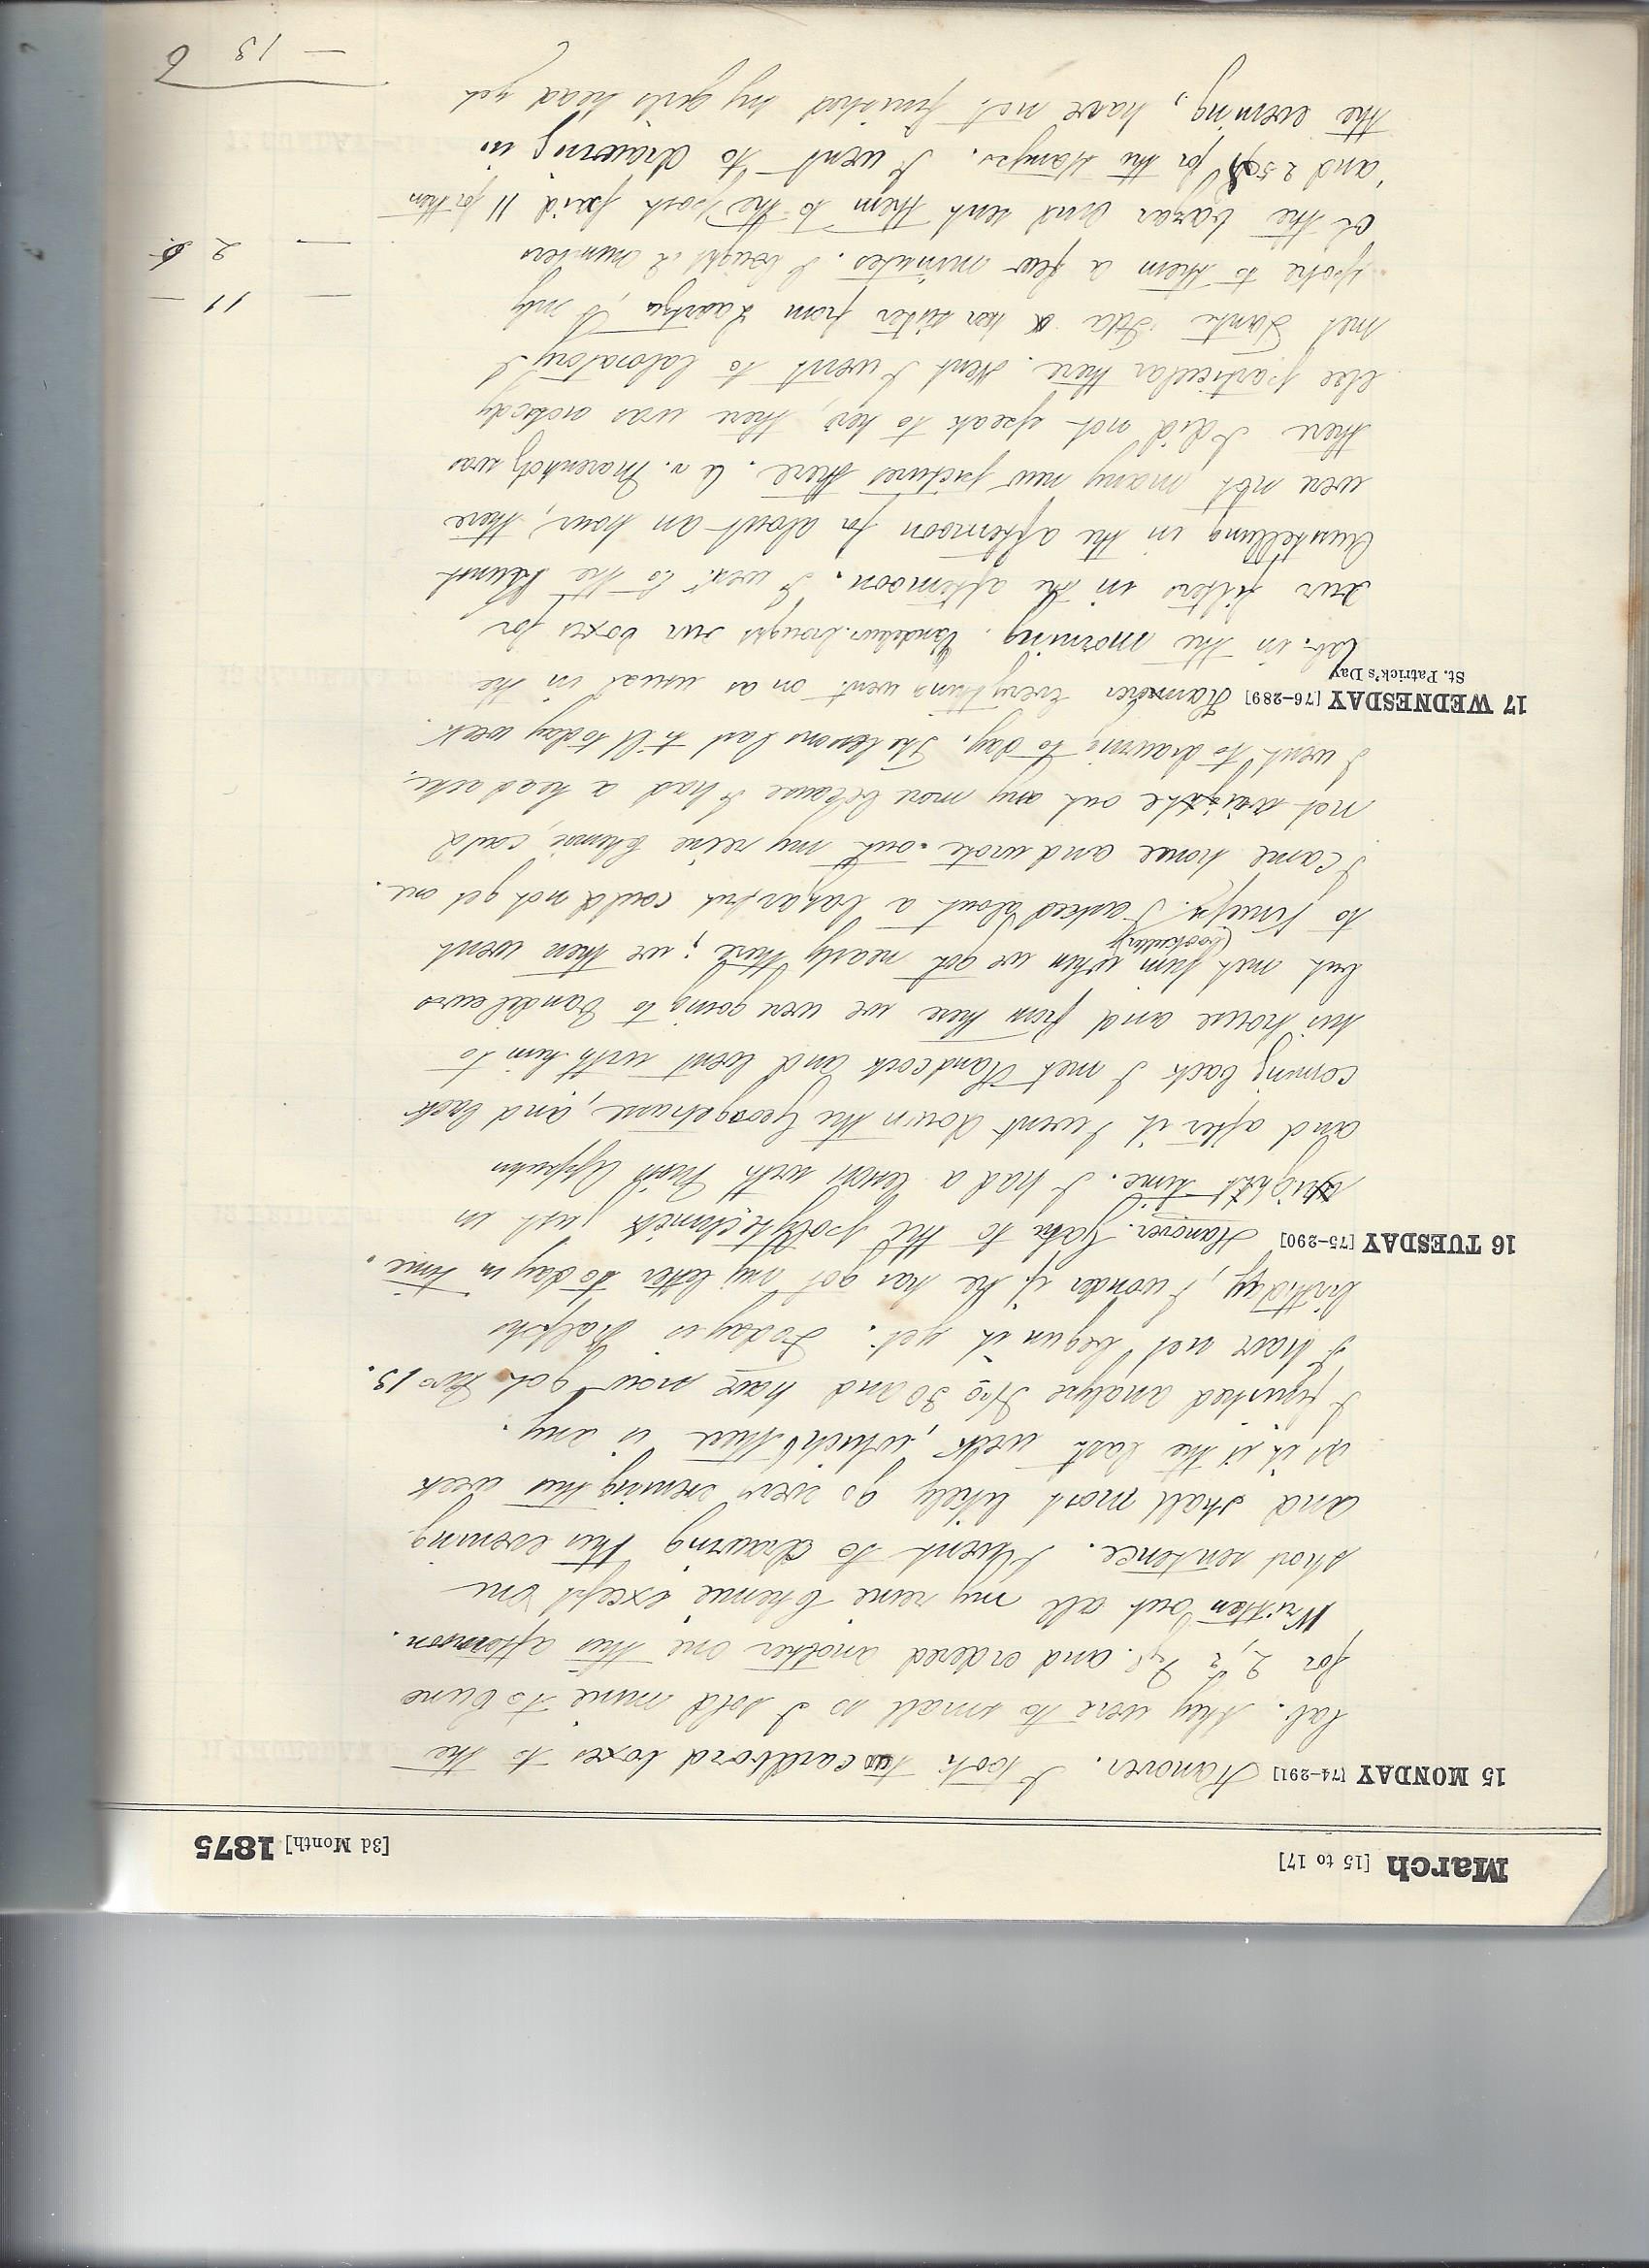 March [15 to 17] [3d Month] 1875
15 MONDAY [74-291] Hanover. I took two cardbord boxes to the
lab. they were to small so I sold mine to Lune
for 2½ and ordered another one this afternoon.
Written out all my reine Chemie except one
short sentence. I went to drawing this evening
and shall most likely go every evening this week
as it is the last week, which there is any.
I finished analyse No 30 and have now got two 13.
I have not begun it yet. Today is Ralphs
birthday, I wonder if he has got my letter today in time.
16 TUESDAY [75-290] Hanover. Gatn to the polytechnick just in
right time. I had a lesson with Miss Appuhn
and after it I went down the Georgstrasse, and back
coming back I met Handcock and went with him to
his house and from there we were going to Vandeleurs
but met him when we got nearly there; we then went
to Kneips. I asked about a bazar but could not get one.
I came home and wrote out my reine Chemie, could
not write out any more because I had a head ache.
I went to drawing to day. The lessons last till today week
17 WEDNESDAY [76-289] Hannover Everything went on as usual in the
St. Patrick's Day
Lab. in the morning. Vandeleur brought our boxes for
our filters in the afternoon. I went to the Kunst
Ausstellung in the afternoon for about an hour, there
were not many new pictures there. C v. Marenholz was
there I did not speak to her, there was nobody
else particular there. Next I went to laboratory I
met Tante Ida & her sister from Laatzen, I only
spoke to them a few minutes. I bought 2 numbers
of the bazar and sent them to the post paid 11 for them
and 2 for the stamps. I went to drawing in
the evening, have not finished my girls head yet
— 11 —
— 2 6
— 13 6